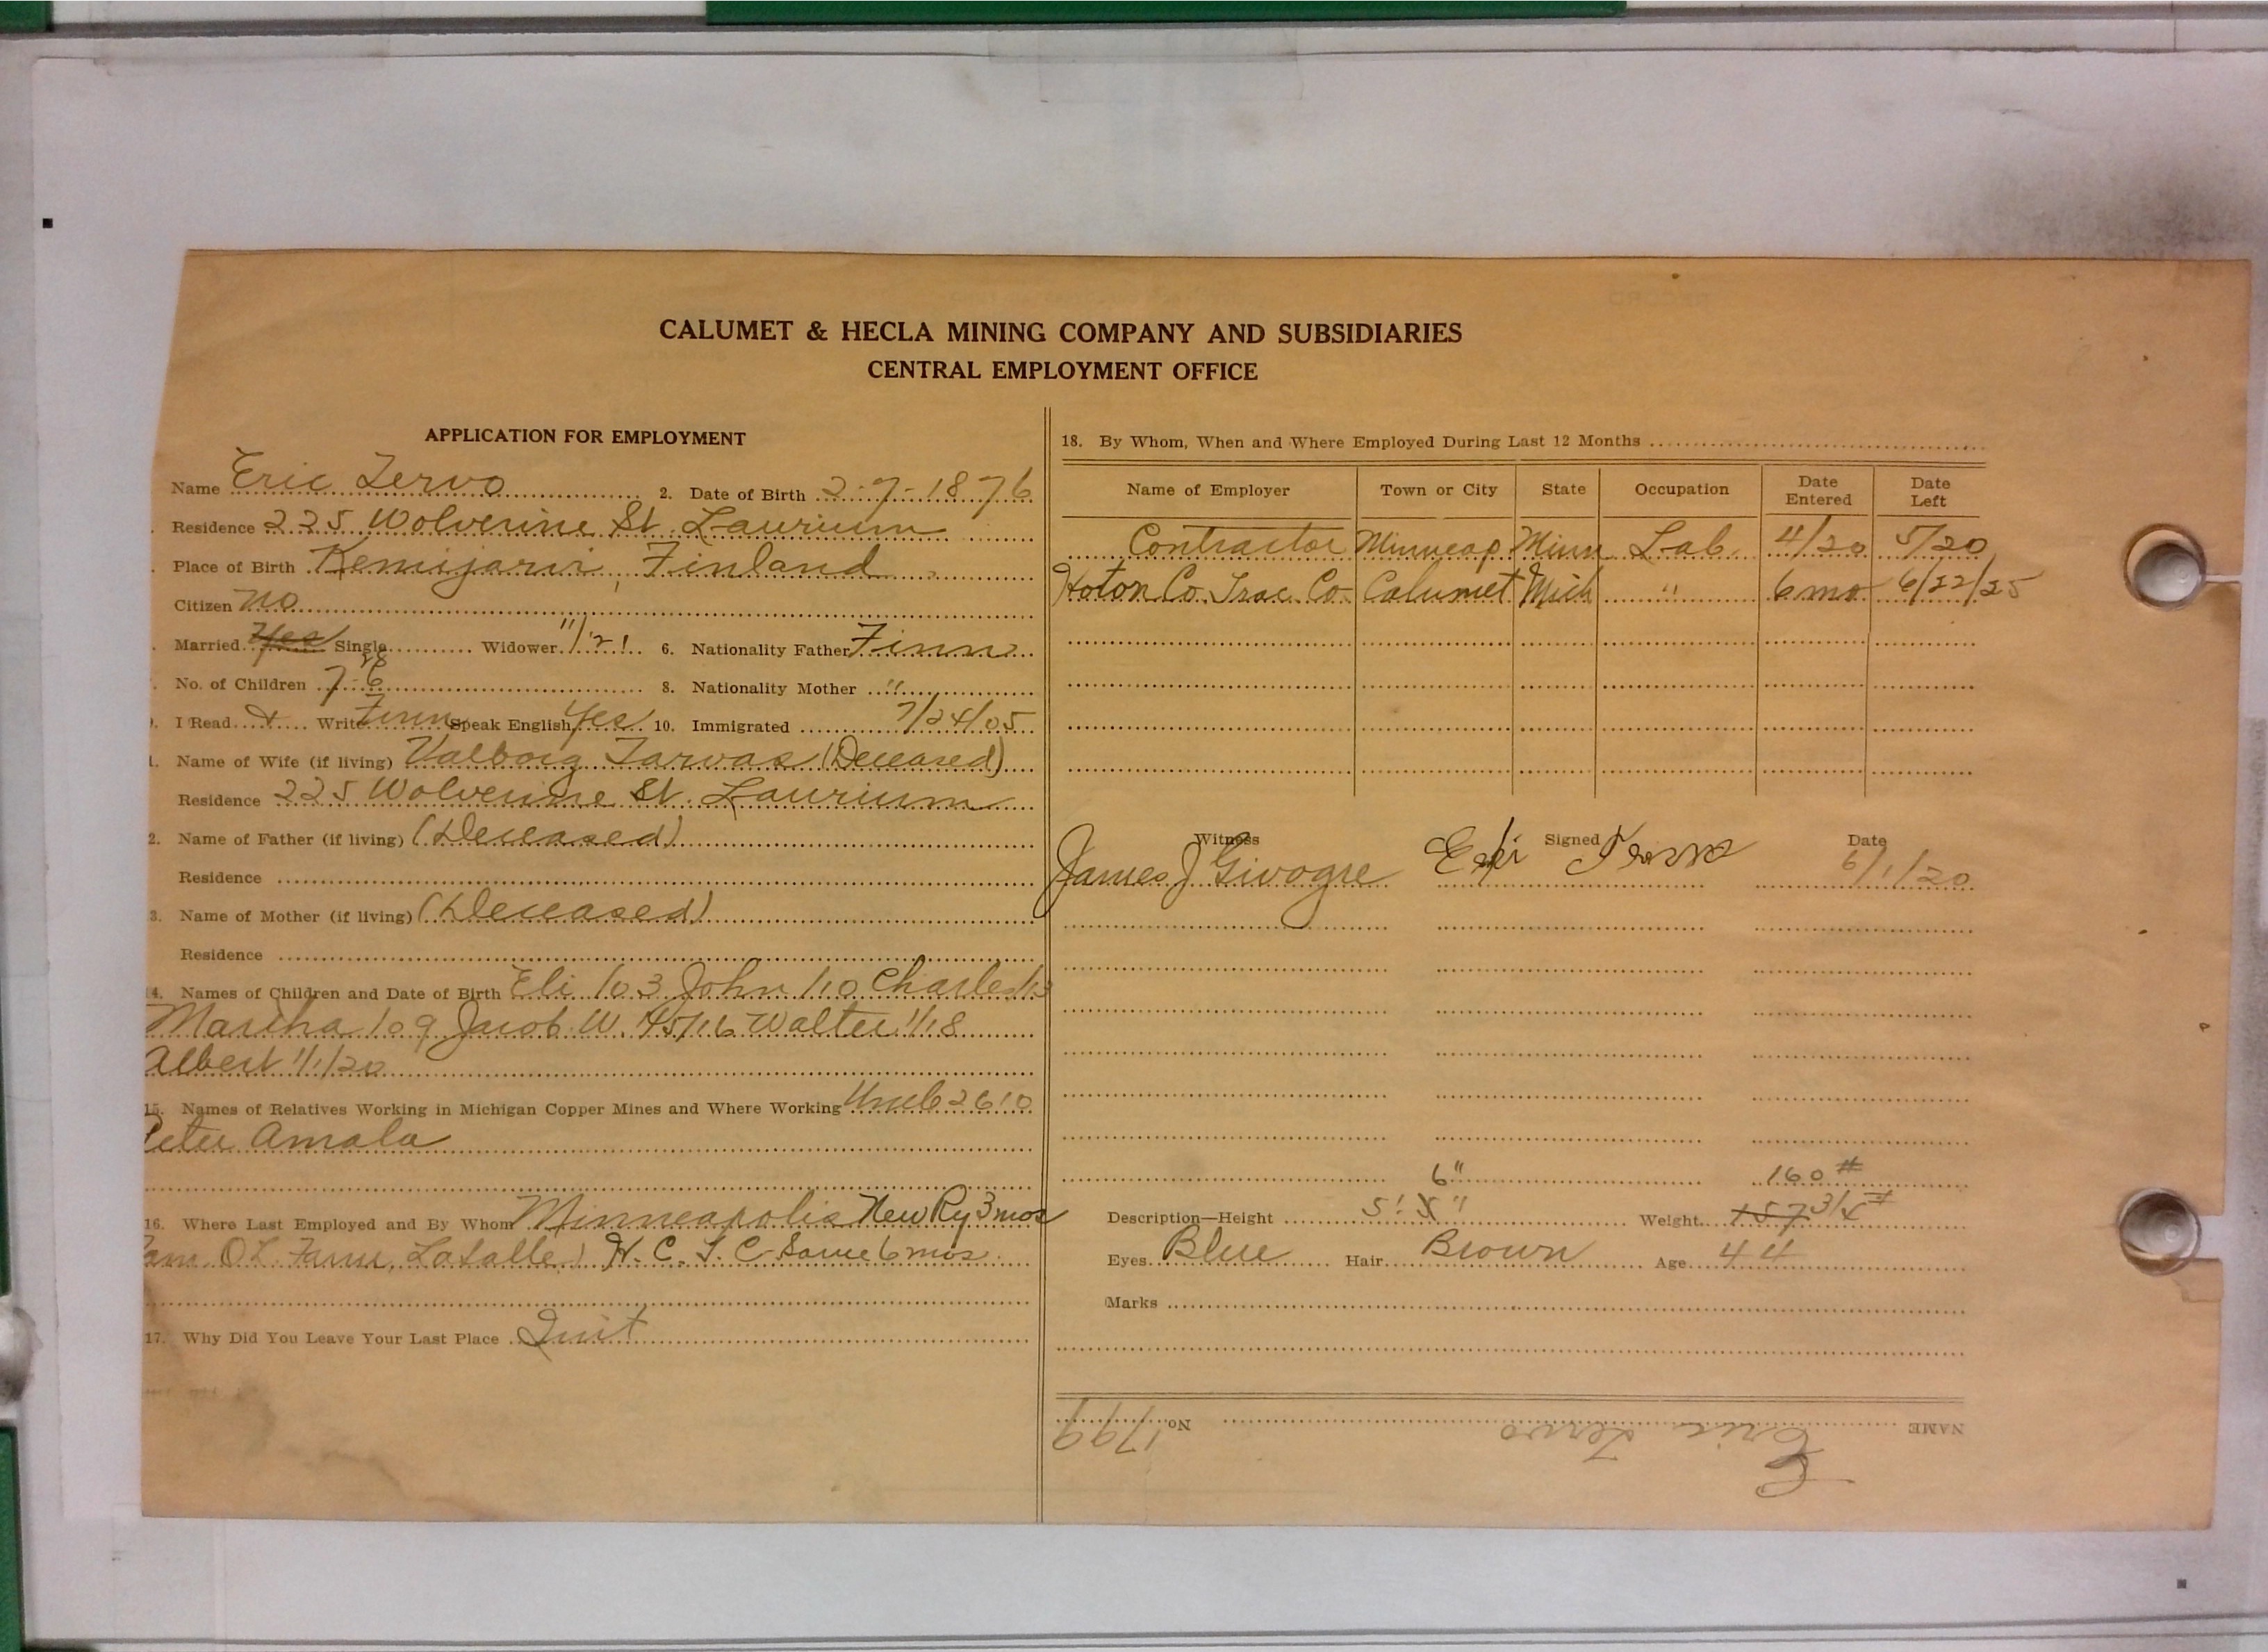 CALUMET & HECLA MINING COMPANY AND SUBSIDIARIES
CENTRAL EMPLOYMENT OFFICE
APPLICATION FOR EMPLOYMENT
Name Eric Tervo 2. Date of Birth 2-7-1876
Residence 225 Wolverine St. Laurium
Place of Birth Kemijarvi, Finland
Citizen No
Married Yes Single Widower 11/21 6. Nationality Father Finn
No. of Children 7-6 8. Nationality Mother "
I Read & Write Finn Speak English Yes 10. Immigrated 7/24/05
1. Name of Wife (if living) Valborg Tarvas (Deceased)
Residence 225 Wolverine St. Laurium
2. Name of Father (if living) (Deceased)
Residence
3. Name of Mother (if living) (Deceased)
Residence
14. Names of Children and Date of Birth Eli 103 John 110 Charles 113
Martha 109 Jacob W. 4/5/16 Walter 1/18
Albert 1/1/20
15. Names of Relatives Working in Michigan Copper Mines and Where Working Uncle 2610
Peter Amala
16. Where Last Employed and By Whom Minneapolis New Ry 3 mos
O.L. Farm, LaSalle) H. C. T. C- Same 6 mos.
17. Why Did You Leave Your Last Place Quit
18. By Whom, When and Where Employed During Last 12 Months
Name of Employer Town or City State Occupation Date Entered Date Left
Contractor Minneap Minn Lab. 4/20 5/20
Hoton Co. Trac. Co. Calumet Mich " 6 mo 6/22/25
Witness Signed Date
James J Givogre 6/1/20
6" 160#
Description—Height 5' Weight 157 3/4#
Eyes Blue Hair Brown Age 44
Marks
NAME Eric Tervo No. 1799
E